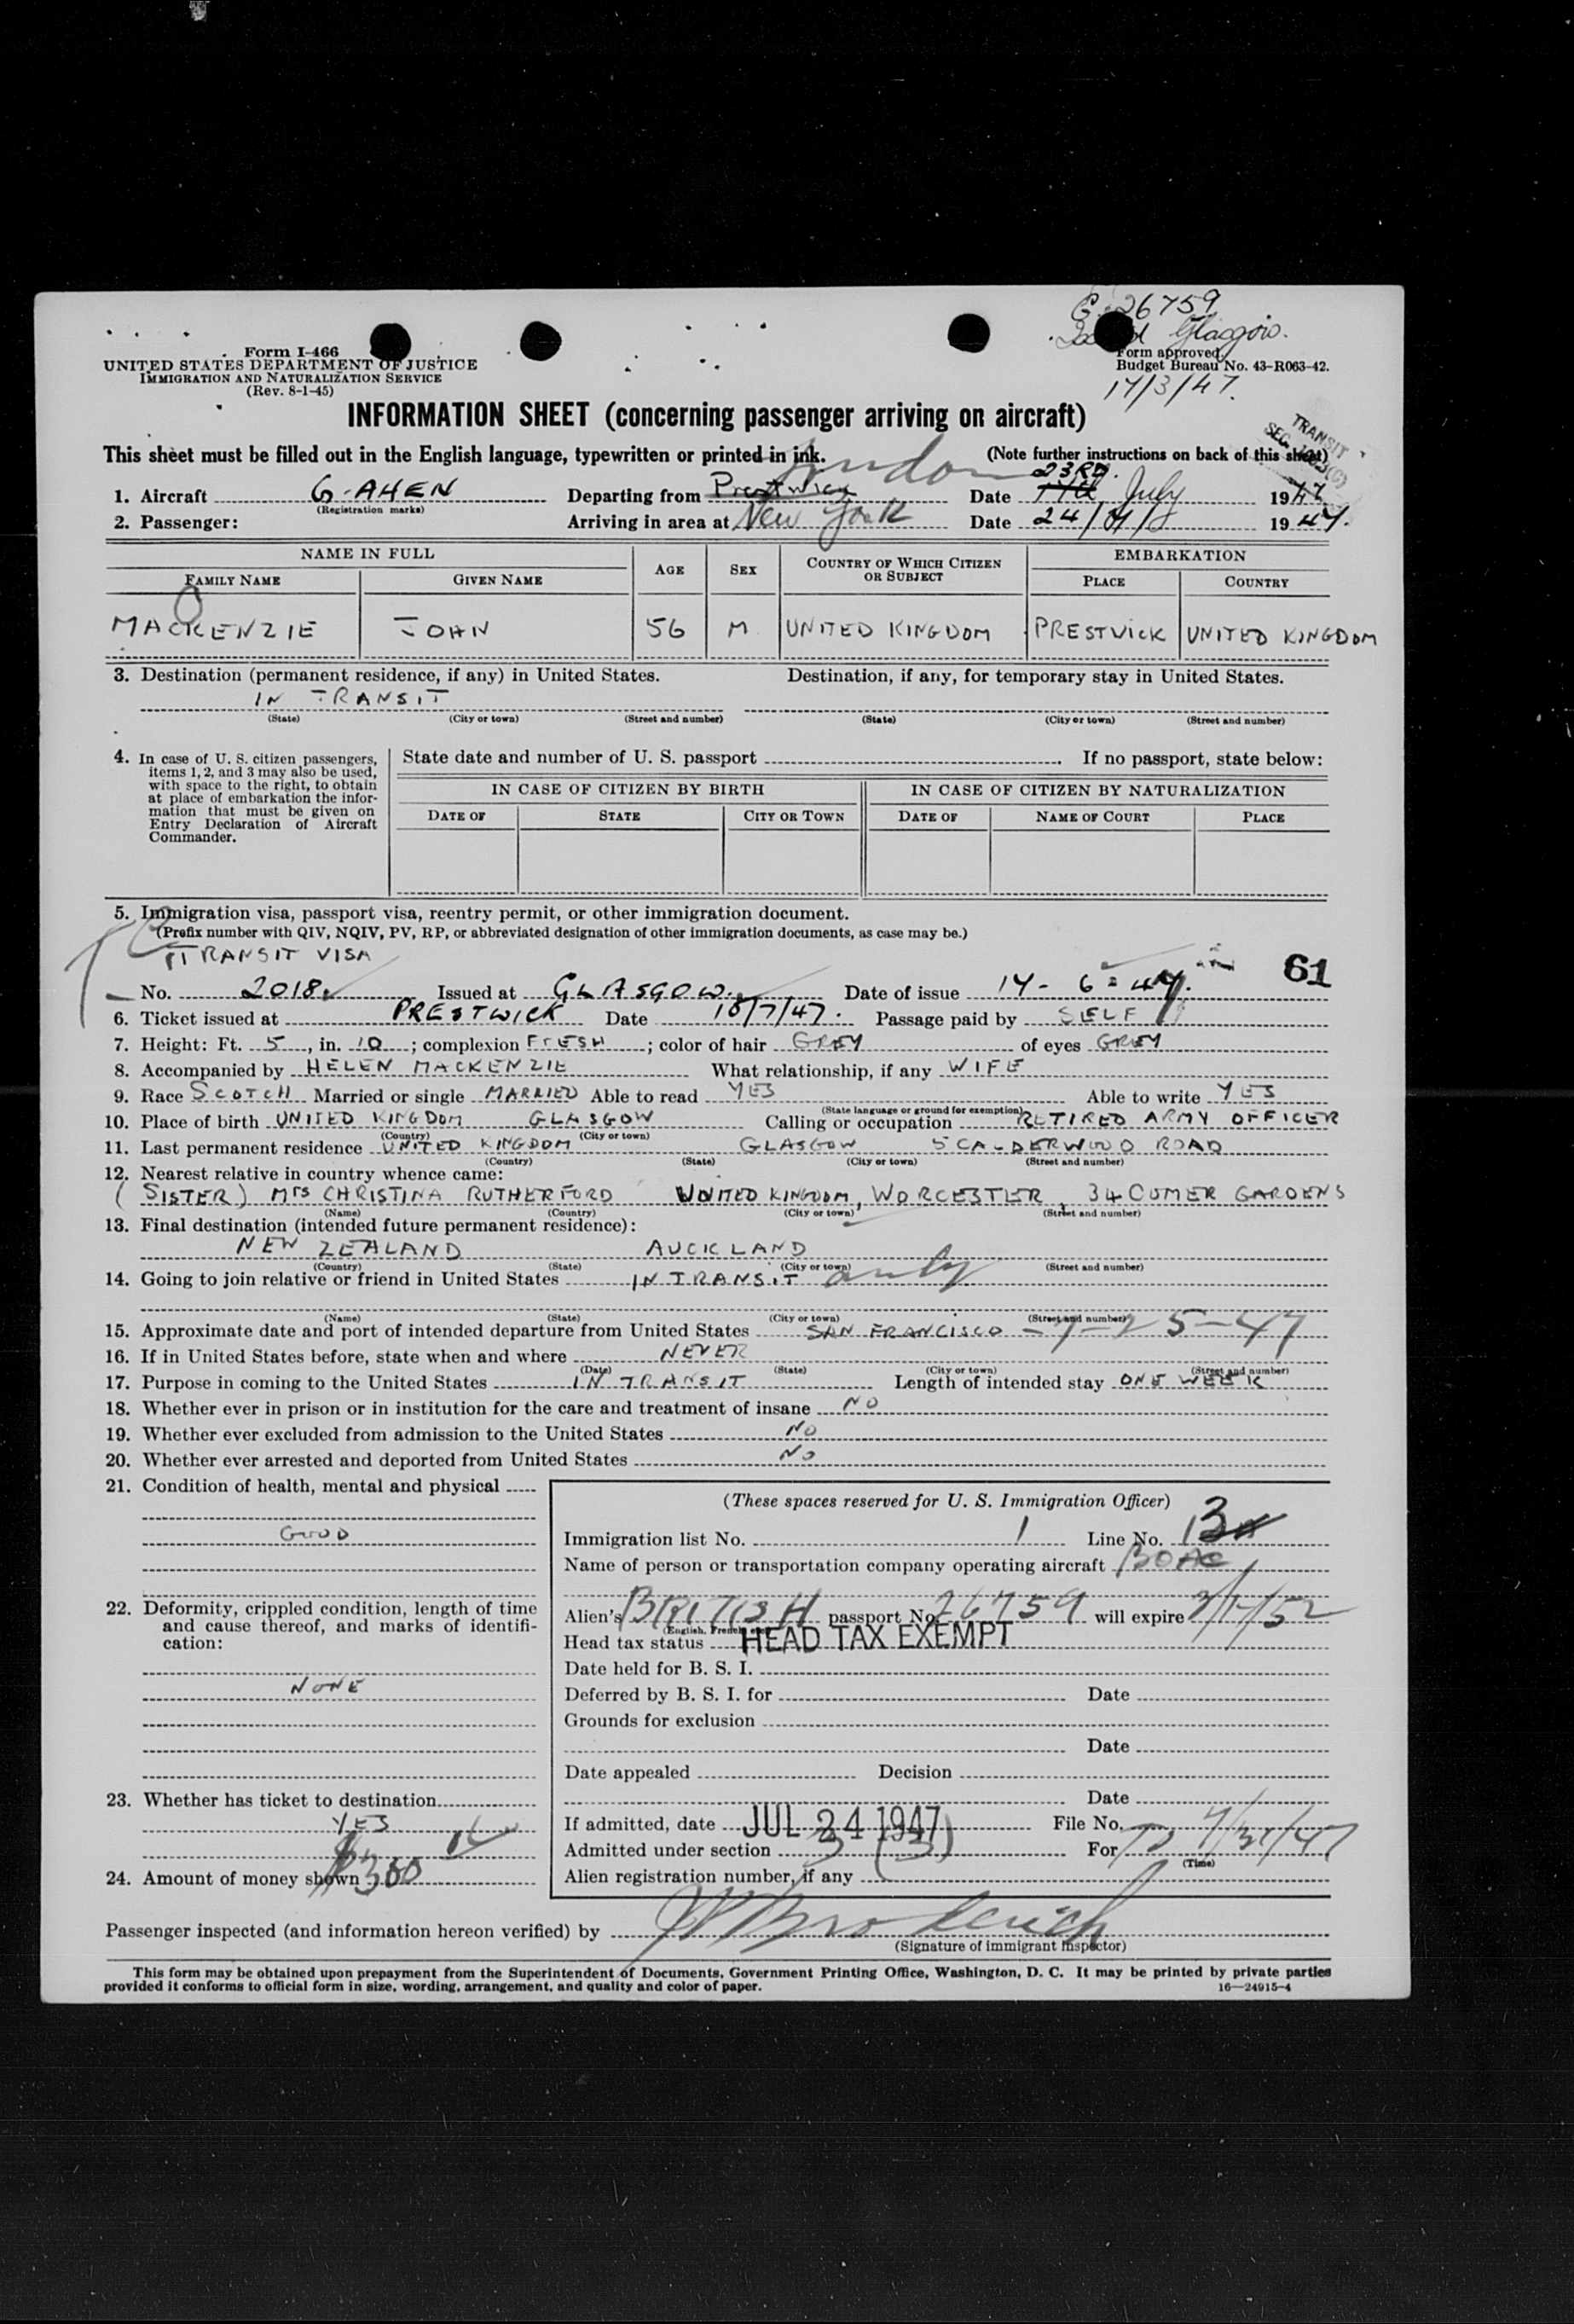 C. 26759
Glasgow.
Form I-466
UNITED STATES DEPARTMENT OF JUSTICE
IMMIGRATION AND NATURALIZATION SERVICE
(Rev. 8-1-45)
Form approved
Budget Bureau No. 43-R063-42.
17/3/47.
INFORMATION SHEET (concerning passenger arriving on aircraft)
TRANSIT
This sheet must be filled out in the English language, typewritten or printed in ink. (Note further instructions on back of this sheet)
London 23RD.
1. Aircraft G-AHEN Departing from Prestwick Date July 1947
(Registration marks)
2. Passenger: Arriving in area at New York Date 24/7/ 1947.
NAME IN FULL AGE SEX COUNTRY OF WHICH CITIZEN OR SUBJECT EMBARKATION
FAMILY NAME GIVEN NAME PLACE COUNTRY
MACKENZIE JOHN 56 M UNITED KINGDOM PRESTWICK UNITED KINGDOM
3. Destination (permanent residence, if any) in United States. Destination, if any, for temporary stay in United States.
IN TRANSIT
(State) (City or town) (Street and number) (State) (City or town) (Street and number)
4. In case of U. S. citizen passengers, items 1, 2, and 3 may also be used, with space to the right, to obtain at place of embarkation the information that must be given on Entry Declaration of Aircraft Commander.
State date and number of U. S. passport If no passport, state below:
IN CASE OF CITIZEN BY BIRTH IN CASE OF CITIZEN BY NATURALIZATION
DATE OF STATE CITY OR TOWN DATE OF NAME OF COURT PLACE
5. Immigration visa, passport visa, reentry permit, or other immigration document.
(Prefix number with QIV, NQIV, PV, RP, or abbreviated designation of other immigration documents, as case may be.)
TRANSIT VISA
61
No. 2018 Issued at GLASGOW. Date of issue 14-6-47.
6. Ticket issued at PRESTWICK Date 18/7/47. Passage paid by SELF
7. Height: Ft. 5, in. 10; complexion FRESH; color of hair GREY of eyes GREY
8. Accompanied by HELEN MACKENZIE What relationship, if any WIFE
9. Race SCOTCH Married or single MARRIED Able to read YES Able to write YES
(State language or ground for exemption)
10. Place of birth UNITED KINGDOM GLASGOW Calling or occupation RETIRED ARMY OFFICER
(Country) (City or town)
11. Last permanent residence UNITED KINGDOM GLASGOW 5 CALDERWOOD ROAD
(Country) (State) (City or town) (Street and number)
12. Nearest relative in country whence came:
(SISTER) Mrs CHRISTINA RUTHERFORD UNITED KINGDOM, WORCESTER, 34 COMER GARDENS
(Name) (Country) (City or town) (Street and number)
13. Final destination (intended future permanent residence):
NEW ZEALAND AUCKLAND
(Country) (State) (City or town) (Street and number)
14. Going to join relative or friend in United States IN TRANSIT only
(Name) (State) (City or town) (Street and number)
15. Approximate date and port of intended departure from United States SAN FRANCISCO - 7-25-47
16. If in United States before, state when and where NEVER
(Date) (State) (City or town) (Street and number)
17. Purpose in coming to the United States IN TRANSIT Length of intended stay ONE WEEK
18. Whether ever in prison or in institution for the care and treatment of insane NO
19. Whether ever excluded from admission to the United States NO
20. Whether ever arrested and deported from United States NO
21. Condition of health, mental and physical
GOOD
22. Deformity, crippled condition, length of time and cause thereof, and marks of identification:
NONE
23. Whether has ticket to destination
YES
24. Amount of money shown $300
(These spaces reserved for U. S. Immigration Officer)
Immigration list No. 1 Line No. 13
Name of person or transportation company operating aircraft BOAC
Alien's BRITISH passport No. 26759 will expire
(English, French, etc.)
Head tax status HEAD TAX EXEMPT
Date held for B. S. I.
Deferred by B. S. I. for Date
Grounds for exclusion
Date
Date appealed Decision
Date
If admitted, date JUL 24 1947 File No.
Admitted under section 3 (3) For To 7/31/47
(Time)
Alien registration number, if any
Passenger inspected (and information hereon verified) by
(Signature of immigrant inspector)
This form may be obtained upon prepayment from the Superintendent of Documents, Government Printing Office, Washington, D. C. It may be printed by private parties
provided it conforms to official form in size, wording, arrangement, and quality and color of paper. 16—24915-4